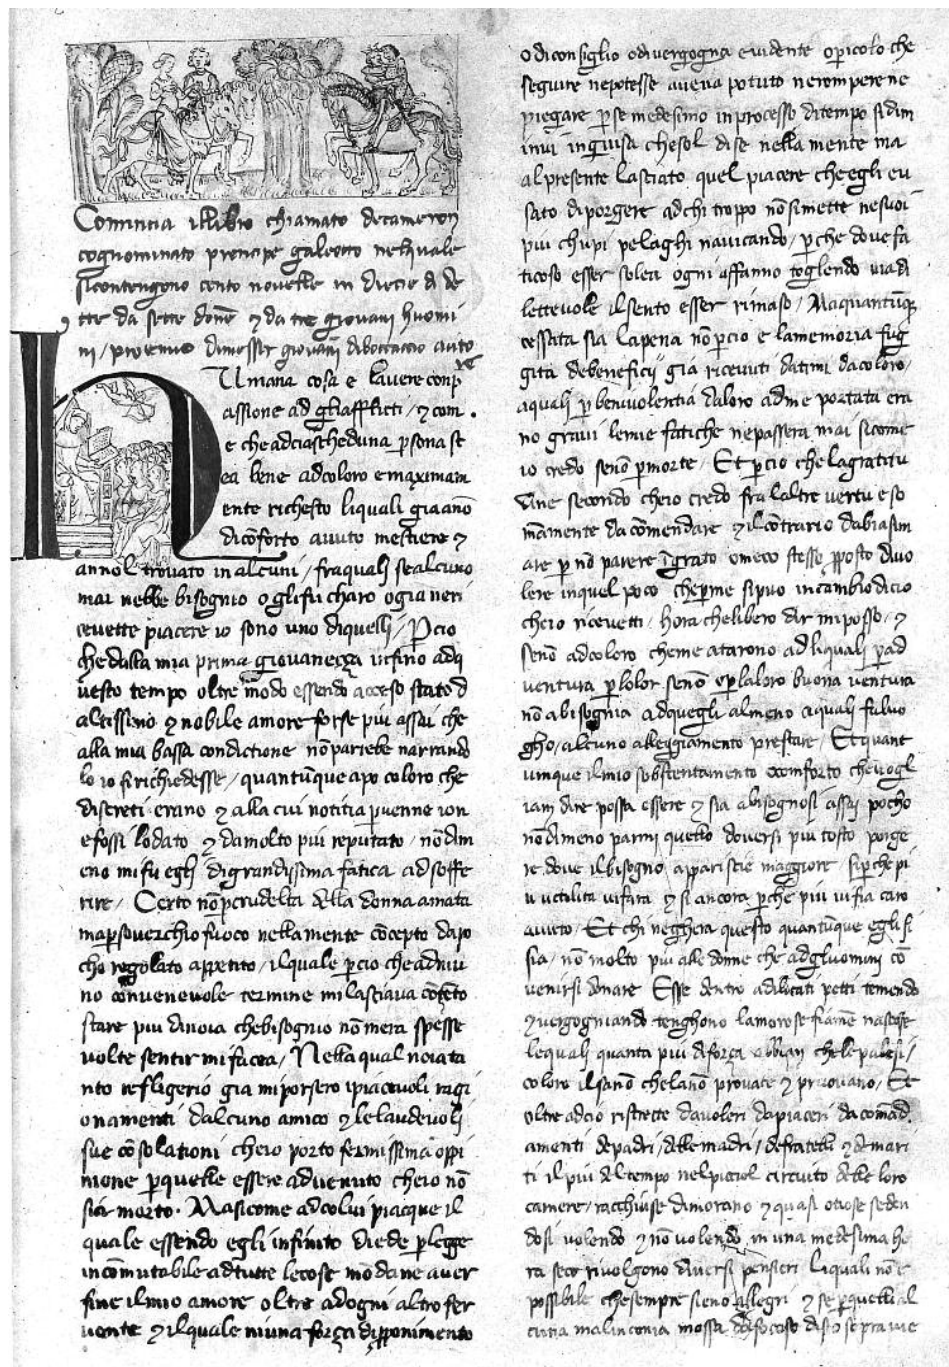 Comincia illibro chiamato decameron
cognominato prencipe galeotto nelquale
sicontengono cento novelle in diecie di de
tte da sette donne & da tre giovani huomi
ni / proemio dimesser giovani diboccaccio auto
re
Umana cosa e lavere conp
assione ad gliafflicti / & com
e che adciascheduna persona ste
ea bene adcoloro e maximam
ente richesto liquali gia anno
diconforto avuto mestiere &
annol trovato in alcuni / fraquali se alcuno
mai nebbe bisognio o glifu charo o gia neri
cevette piacere io sono uno diquelli / Percio
che dalla mia prima giovanezza infino adq
uesto tempo oltre modo essendo acceso stato d
altissimo & nobile amore forse piu assai che
alla mia bassa condictione nō parrebe narrando
lo io si richiedesse / quantūque apo coloro che
discreti erano & alla cui notitia pervenne ion
e fossi lodato & da molto piu reputato / nō dim
eno mi fu egli di grandissima fatica ad soffe
rire / Certo nō per crudelta della donna amata
ma per soverchio fuoco nella mente cōcepto da po
cho regolato appetito / ilquale percio che ad niu
no convenevole termine mi lasciava cōtēto
stare piu di noia che bisognio nō mera spesse
volte sentir mi facea / Nella qual noia ta
nto refligerio gia mi porsero i piacevoli ragi
onamenti dalcuno amico & le laudevoli
sue cōsolationi cheio porto fermissima oppi
nione perquelle essere advenuto cheio nō
sia morto. Ma sicome adcolui piacque il
quale essendo egli infinito diede per legge
incōmutabile ad tutte le cose mōdane aver
fine il mio amore oltre ad ogni altro fer
vente & ilquale niuna força di pponimento
o di consiglio o di vergogna evidente o pericolo che
seguire ne potesse aveva potuto ne rompere ne
piegare per se medesimo in processo di tempo si dim
inui in guisa che sol di se nella mente ma
al presente lasciato quel piacere che egli e u
sato di porgere ad chi troppo nō si mette ne suoi
piu chupi pelaghi navicando / perche dove fa
ticoso esser solea ogni affanno toglendo via di
lettevole il sento esser rimaso / Ma quantūq
cessata sia la pena nō percio e la memoria fug
gita de beneficii gia ricevuti datimi da coloro /
a quali per benivolentia da loro ad me portata era
no gravi le mie fatiche ne passera mai si come
io credo senō per morte / Et percio che la gratitu
dine secondo cheio credo fra laltre vertu e so
māmente da cōmendare & il cōtrario da biasim
are per nō parere īgrato o meco stesso pposto di vo
lere in quel poco che per me si puo in cambio di cio
cheio ricevetti / hora che libero dir mi posso / &
senō ad coloro che me atarono ad liquali per ad
ventura per lo lor senō o per la loro buona ventura
nō abisognia ad quegli almeno a quali fa luo
gho / alcuno alleggiamento prestare / Et quant
unque il mio substentamento o comforto che vogl
iam dire possa essere & sia a bisognosi assai pocho
nō dimeno parmi quello doversi piu tosto porge
re dove il bisogno appariscie maggiore si perche pi
u utilita vi fara & si ancora perche piu vi fia caro
avuto / Et chi neghera questo quantūque egli si
sia / nō molto piu alle donne che ad gluomini cō
venirsi donare Esse dentro a dilicati petti temendo
& vergogniando tenghono lamorose fiāme nascose
lequali quanta piu di força abbian che le palesi /
coloro il sanō che lanō provate & pruovano / Et
oltre ad cio ristrecte da voleri da piaceri da comād
amenti de padri / delle madri / de fratelli & de mari
ti il piu del tempo nel piccol circuito delle loro
camere / racchiuse dimorano & quasi otiose seden
dosi volendo & nō volendo in una medesima ho
ra seco rivolgono diversi pensieri liquali nō e
possibile che sempre sieno allegri & se per quelli al
cuna malinconia mossa da focoso disio sopravie